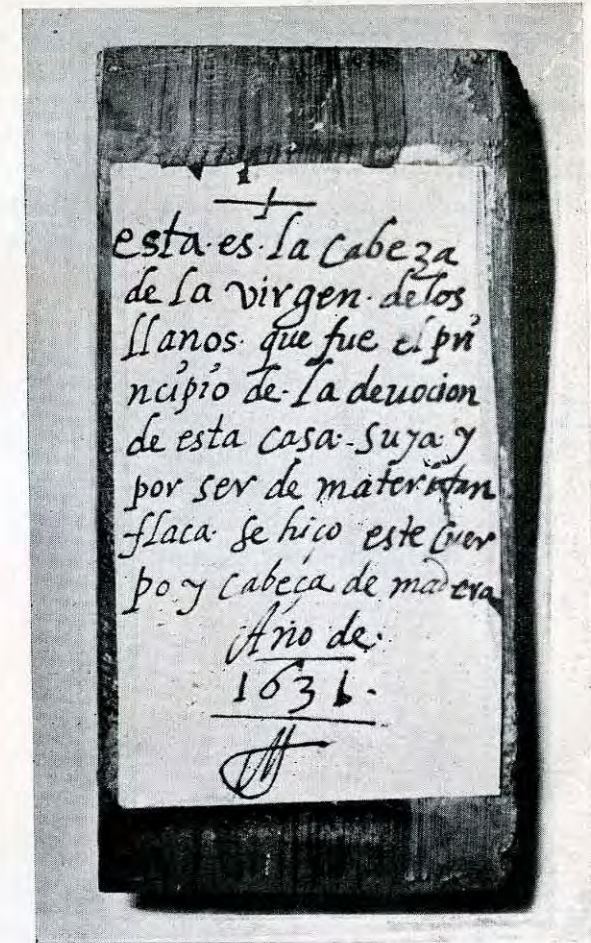 esta·es·la Cabeza
de la virgen·de los
llanos·que fue el pri
ncipio de·la deuocion
de esta casa·suya·y
por ser de materia tan
flaca·se hiço este Cuer
po y Cabeça de madera
Año de·
1631·